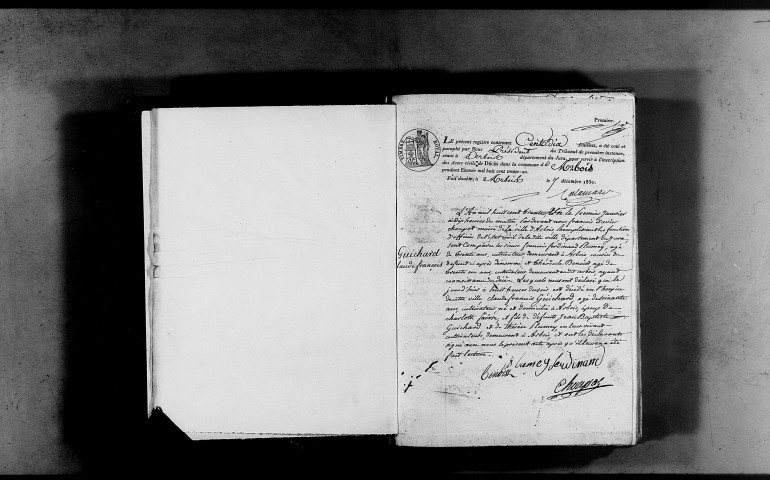 Premier.
LE présent registre contenant Cent dix feuillets, a été coté et
paraphé par Nous Président du Tribunal de première instance,
séant à Arbois département du Jura, pour servir à l'inscription
des Actes civils de Décès dans la commune d'Arbois
pendant l'année mil huit cent trente-un.
Fait double, à Arbois le 7 décembre 1830.
L'An mil huit cent trente le premier janvier
à dix heures du matin Par devant nous françois
maire de la ville d'Arbois remplissant les fonctions
d'officier de l'état civil de la dite ville département du Jura
sont Comparus les sieurs françois ferdinand agé
de trente ans, cultivateur, demeurant à Arbois cousin du
défunt ci après dénommé et Benoit agé de
trente un ans, cultivateur demeurant audit Arbois, ayant
connaissance du décès. Lesquels nous ont déclaré que le
jour d'hier à huit heures du soir est décédé en l'hospice
de cette ville claude françois Guichard agé de soixante
ans, cultivateur, né et domicilié à Arbois, époux de
charlotte et fils de défunts Jean Baptiste
Guichard et de Thérèse en leur vivant
cultivateurs, demeurant à Arbois, et ont les déclarants
signé avec nous le présent acte après qu'il leur en a été
fait lecture.
Guichard
Claude françois
ferdinand